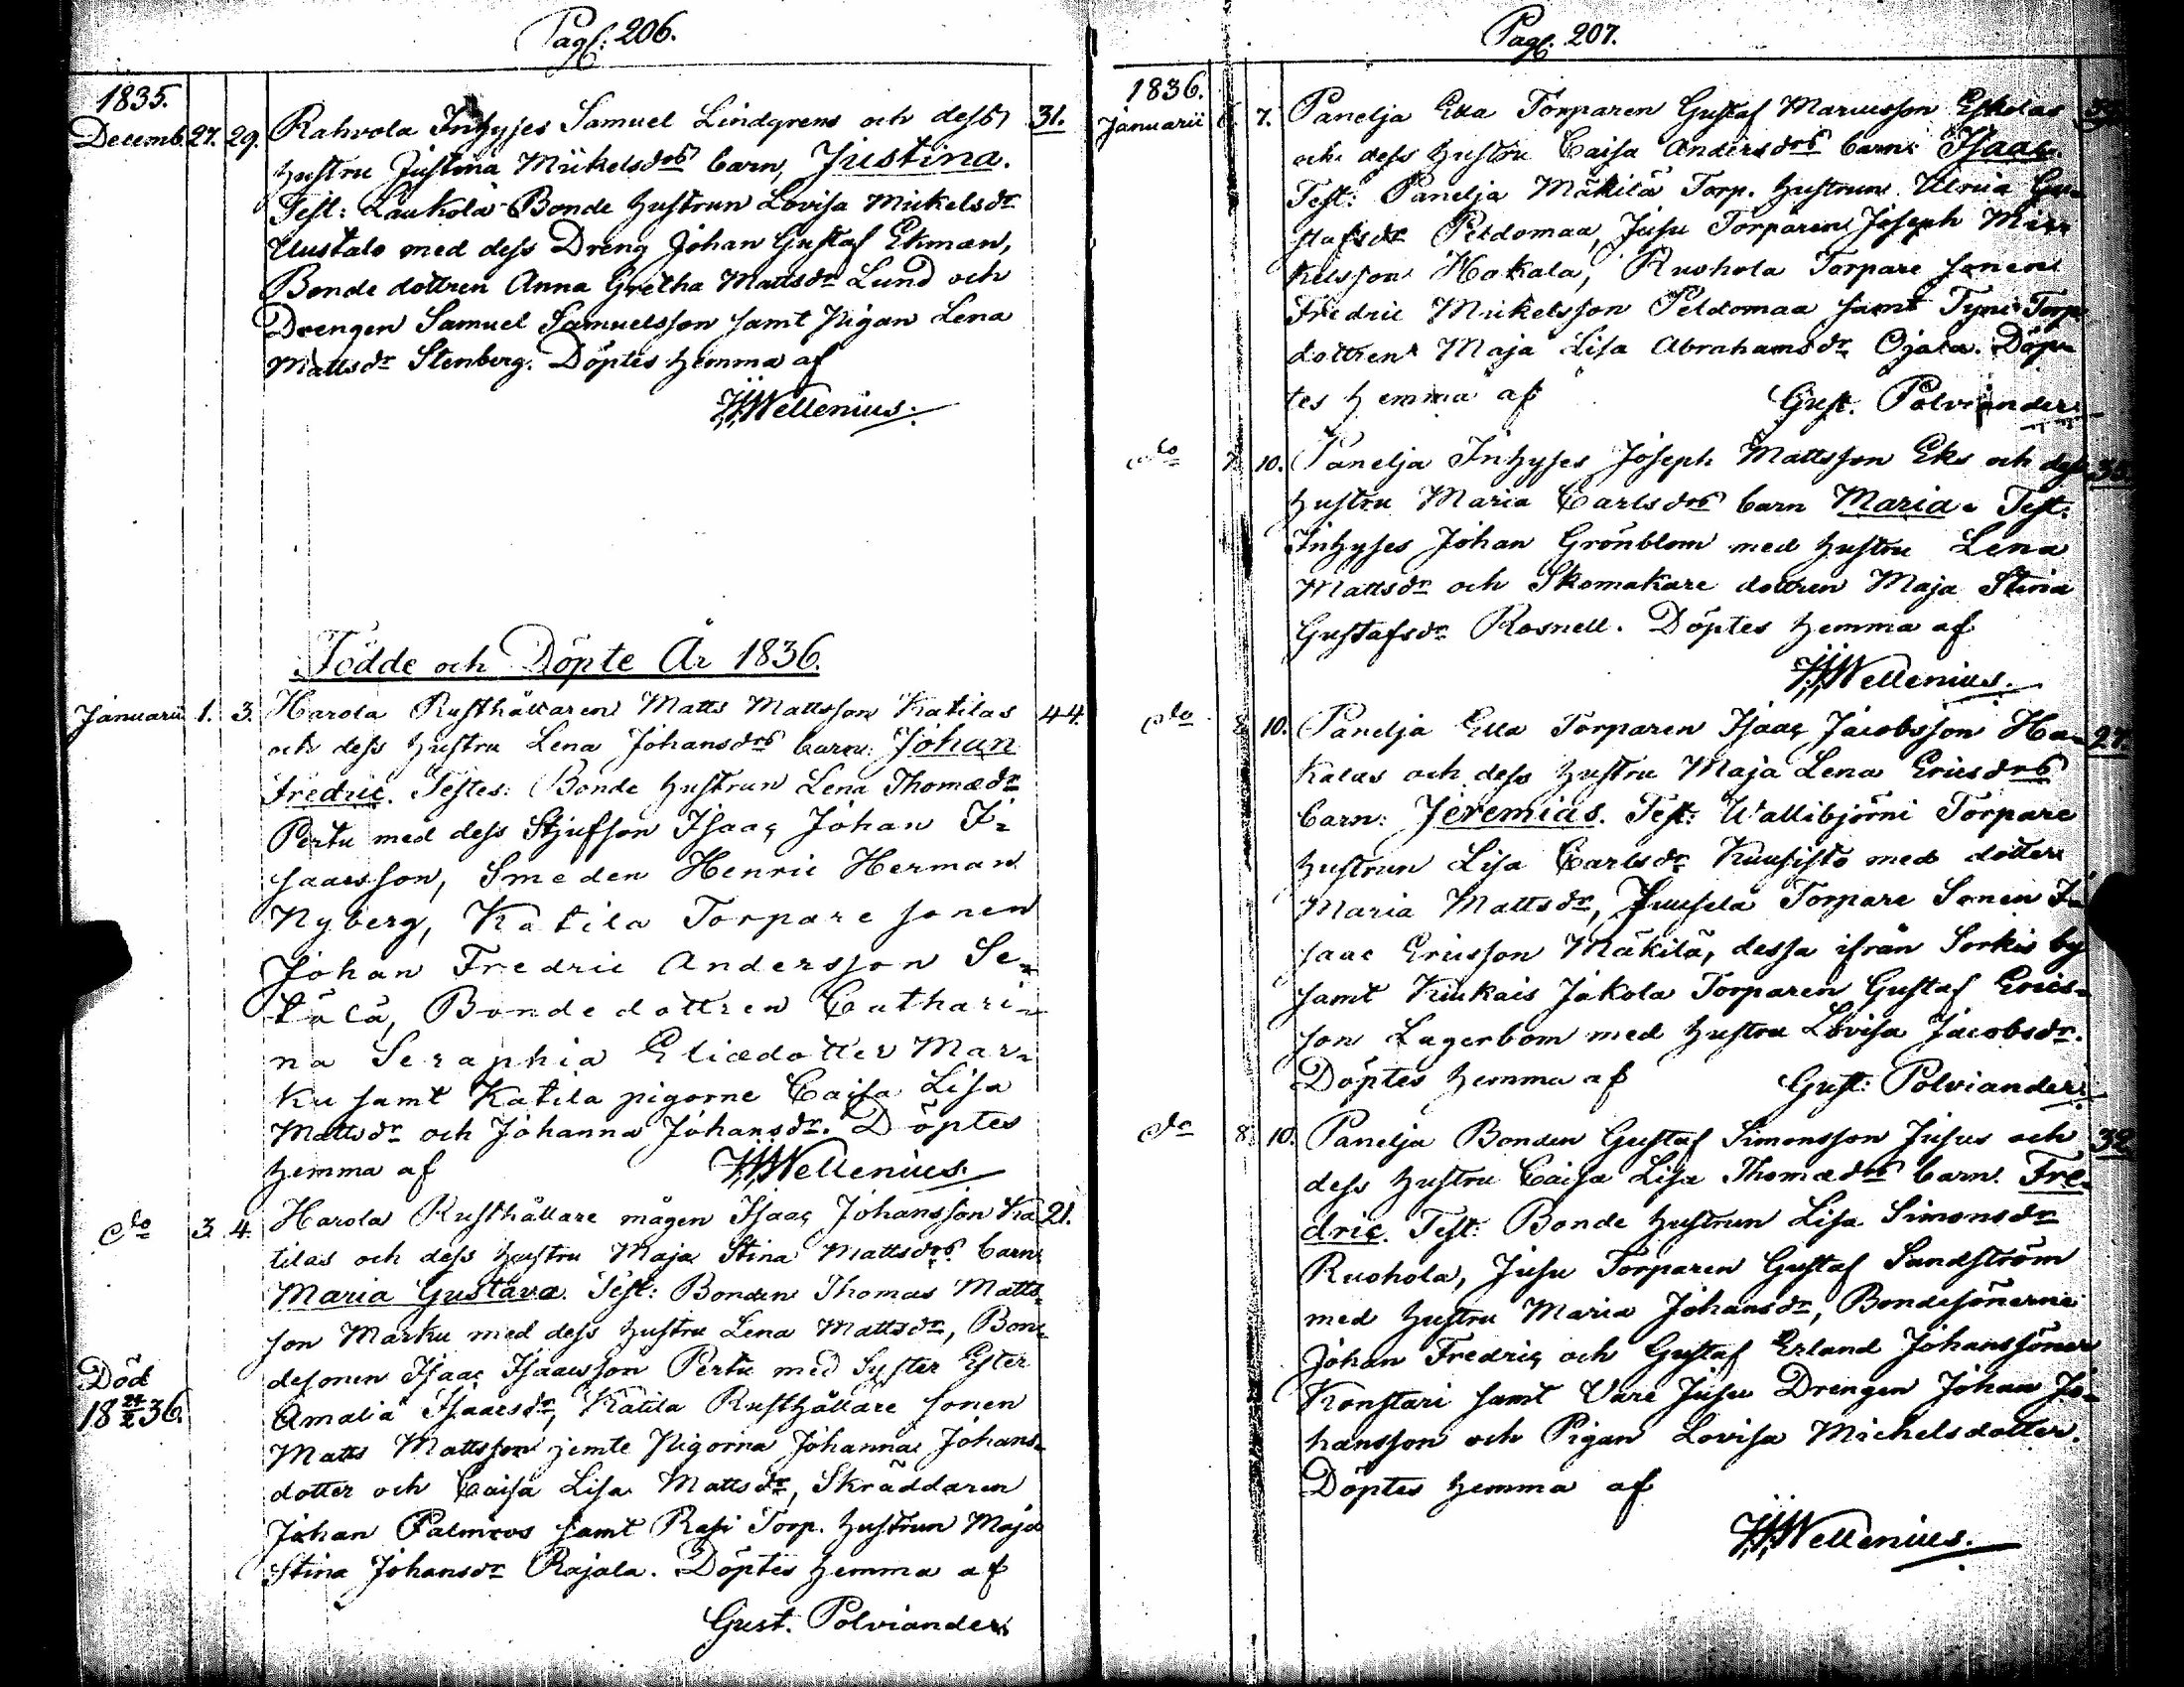 Pag: 206.
1835.
Decemb. 27. 29. Rahvola Inhyses Samuel Lindgrens och dess 31.
hustru Justina Mickelsdrs barn, Justina.
Test: Laukola Bonde hustrun Lovisa Mickelsdr
Uustalo med dess Dreng Johan Gustaf Ekman,
Bonde dottren Anna Gretha Mattsdr Lund och
Drengen Samuel Samuelsson samt Pigan Lena
Mattsdr Stenberg. Döptes hemma af
Wellenius.
Födde och Döpte År 1836.
Januarii 1. 3. Harola Rusthållaren Matts Mattsson Katilas 44.
och dess hustru Lena Johansdrs barn: Johan
Fredric. Testes: Bonde hustrun Lena Thomædr
Pertu med dess Stjufson Isaac Johan I-
saacsson, Smeden Henric Herman
Nyberg, Katila Torpare sonen
Johan Fredric Andersson Se-
tälä, Bonde dottren Cathari-
na Seraphia Eliædotter Mar-
ku samt Katila pigorne Caisa Lisa
Mattsdr och Johanna Johansdr. Döptes
hemma af Wellenius.
do 3. 4. Harola Rusthållare mågen Isaac Johansson Ka- 21.
tilas och dess hustru Maja Stina Mattsdrs barn
Maria Gustava. Test: Bonden Thomas Matts-
son Marku med dess hustru Lena Mattsdr, Bon-
desonen Isaac Isaacsson Pertu med Syster Ester
Död
Amalia Isaacsdr, Katila Rusthållare sonen
18 24/2 36.
Matts Mattsson jemte Pigorna Johanna Johans-
dotter och Caisa Lisa Mattsdr, Skräddaren
Johan Palmroos samt Rasi Torp. hustrun Maja
Stina Johansdr Rajala. Döptes hemma af
Gust. Polviander
Pag: 207.
1836.
Januarii 6. 7. Panelja Ella Torparen Gustaf Mariusson Eskolas
och dess hustru Caisa Andersdrs barn: Isaac.
Test: Panelja Mäkilä Torp. hustrun Ulrica Gu-
stafsdr Peldomaa, Jusu Torparen Joseph Mic-
kelsson Hakala, Ruohola Torpare sonen
Fredric Mickelsson Peldomaa samt Tyni Torp.
dottren Maja Lisa Abrahamsdr Ojala. Döp-
tes hemma af Gust. Polviander
do 7. 10. Panelja Inhyses Joseph Mattsson Eks och dess
hustru Maria Carlsdrs barn Maria. Test:
Inhyses Johan Grönblom med hustru Lena
Mattsdr och Skomakare dottren Maja Stina
Gustafsdr Rosnell. Döptes hemma af
Wellenius.
do 10. Panelja Ella Torparen Isaac Jacobsson Ha- 27.
kalas och dess hustru Maja Lena Ericsdrs
barn: Jeremias. Test: Wallibjörni Torpare
hustrun Lisa Carlsdr Kuusisto med dotter
Maria Mattsdr, Juusela Torpare Sonen I-
saac Ericsson Mäkilä, dessa ifrån Sorkis by
samt Kiukais Jakola Torparen Gustaf Erics-
son Lagerbom med hustru Lovisa Jacobsdr.
Döptes hemma af Gust: Polviander.
do 8. 10. Panelja Bonden Gustaf Simonsson Jusus och 32
dess hustru Caisa Lisa Thomædrs barn. Fre-
dric. Test: Bonde hustrun Lisa Simonsdr
Ruohola, Jusu Torparen Gustaf Sandström
med hustru Maria Johansdr, Bondesönerne
Johan Fredric och Gustaf Erland Johanssöner
Konstari samt Vare Jusu Drengen Johan Jo-
hansson och Pigan Lovisa Michelsdotter.
Döptes hemma af
Wellenius.